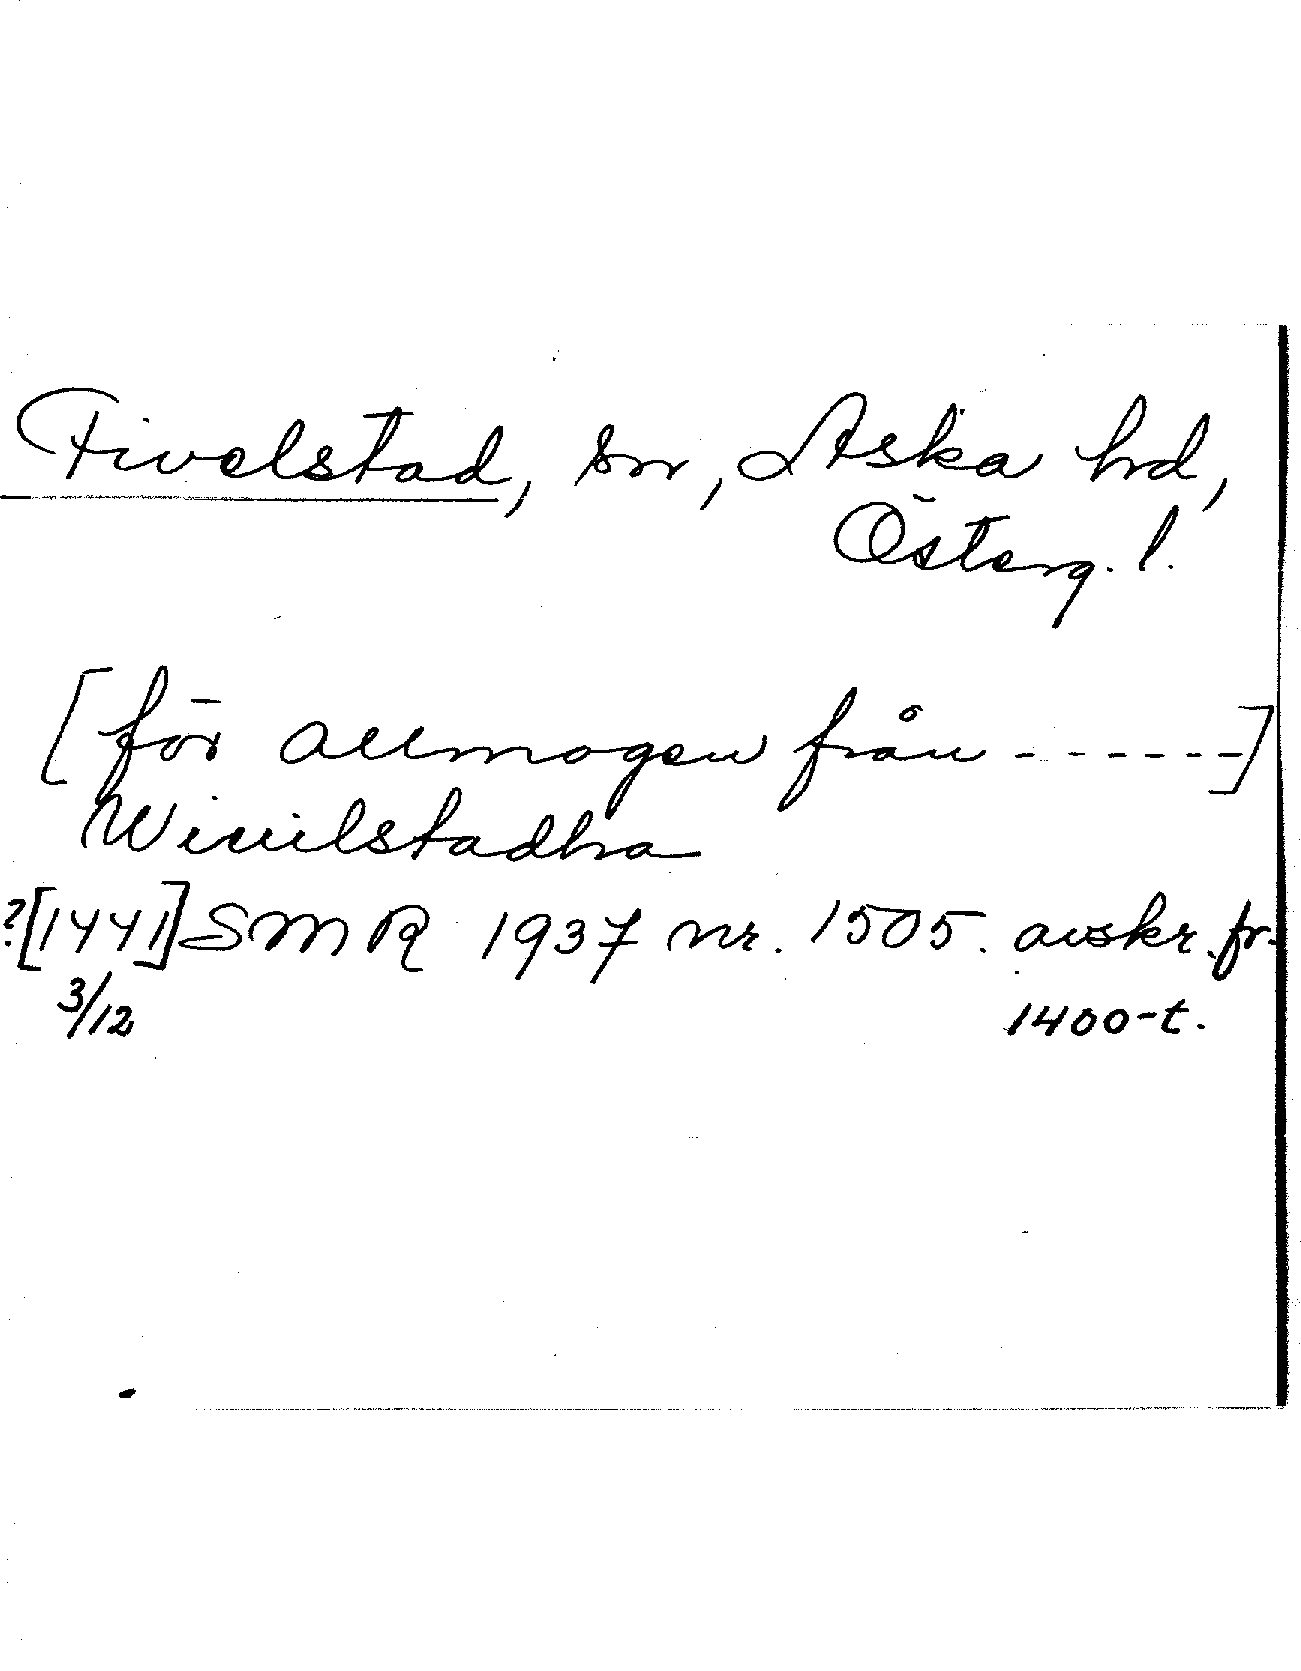 Fivelstad, sn, Aska hd,
Österg. l.
[för allmogen från ------]
Wiuilstadha
?[1441] SMR 1937 nr. 1505. avskr. fr.
3/12 1400-t.